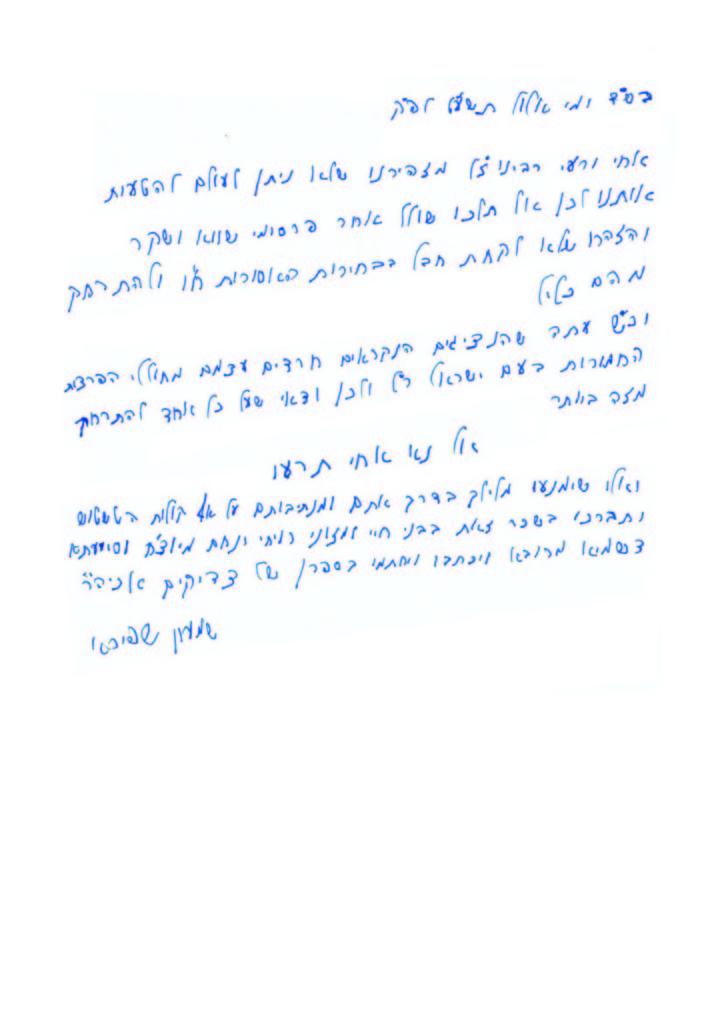 בס"ד ימי אלול תשע"ט לפ"ק
אחי ורעי רבינו ז"ל מזהירנו שלא ניתן לעולם להטעות
אותנו לכן אל תלכו שולל אחר פרסומי שווא ושקר
והזהרו שלא לקחת חבל בבחירות האסורות ח"ו ולהתרחק
מהם כליל
וכ"ש עתה שהנציגים הנקראים חרדים עצמם מחוללי הפרצות
החמורות בעם ישראל ר"ל ולכן ודאי שעל כל אחד להתרחק
מזה ביותר
אל נא אחי תרעו
ואלו שימנעו מלילך בדרך אתם ומנתיבותם על אף קולות הטשטוש
יתברכו בשכר זאת בבני חיי ומזוני רויחי ונחת מיוצ"ח וסיעתא
דשמיא מרובא ויכתבו ויחתמו בספרן של צדיקים אכיה"ר
שמעון שפירא